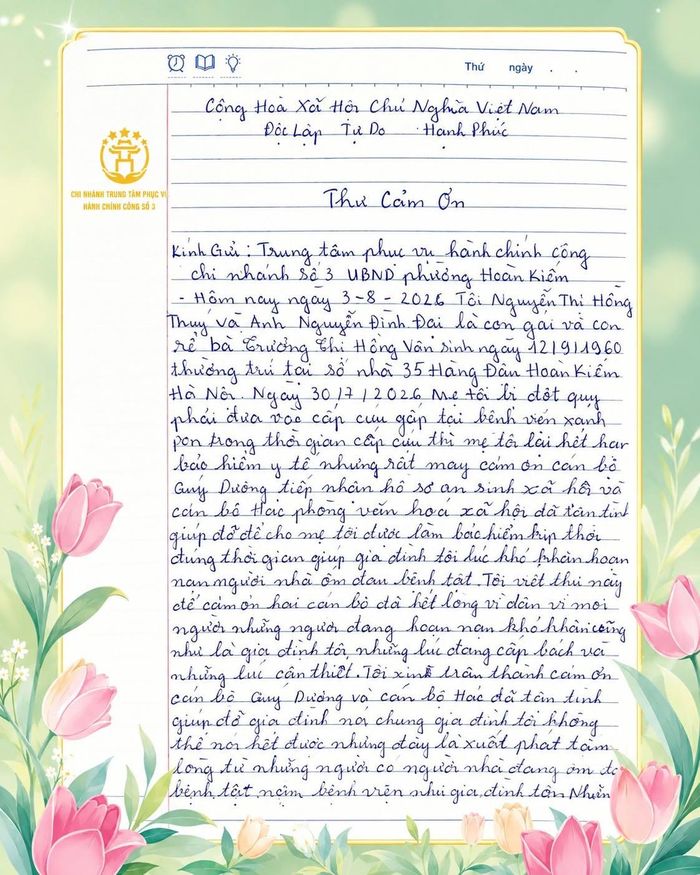 Thứ ngày . .
Cộng Hoà Xã Hội Chủ Nghĩa Việt Nam
Độc Lập Tự Do Hạnh Phúc
CHI NHÁNH TRUNG TÂM PHỤC VỤ
HÀNH CHÍNH CÔNG SỐ 3
Thư Cảm Ơn
Kính Gửi : Trung tâm phục vụ hành chính công
chi nhánh số 3 UBND phường Hoàn Kiếm
- Hôm nay ngày 3-8-2026 Tôi Nguyễn Thị Hồng
Thuý và Anh Nguyễn Đình Đai là con gái và con
rể bà Trương Thị Hồng Vân sinh ngày 12/9/1960
thường trú tại số nhà 35 Hàng Đàn Hoàn Kiếm
Hà Nội. Ngày 30/7/2026 mẹ tôi bị đột quỵ
phải đưa vào cấp cứu gấp tại bệnh viện xanh
pon trong thời gian cấp cứu thì mẹ tôi lại hết hạn
bảo hiểm y tế nhưng rất may cảm ơn cán bộ
Quý Dương tiếp nhận hồ sơ an sinh xã hội và
cán bộ Hắc phòng văn hoá xã hội đã tận tình
giúp đỡ để cho mẹ tôi được làm bảo hiểm kịp thời
đúng thời gian giúp gia đình tôi lúc khó khăn hoạn
nạn người nhà ốm đau bệnh tật. Tôi viết thư này
để cảm ơn hai cán bộ đã hết lòng vì dân vì mọi
người những người đang hoạn nạn khó khăn cũng
như là gia đình tôi, những lúc đang cấp bách và
những lúc cần thiết. Tôi xin trân thành cảm ơn
cán bộ Quý Dương và cán bộ Hắc đã tận tình
giúp đỡ gia đình nói chung gia đình tôi không
thể nói hết được nhưng đây là xuất phát tấm
lòng từ những người có người nhà đang ốm đa
bệnh tật nằm bệnh viện như gia đình tôi. Nhữn